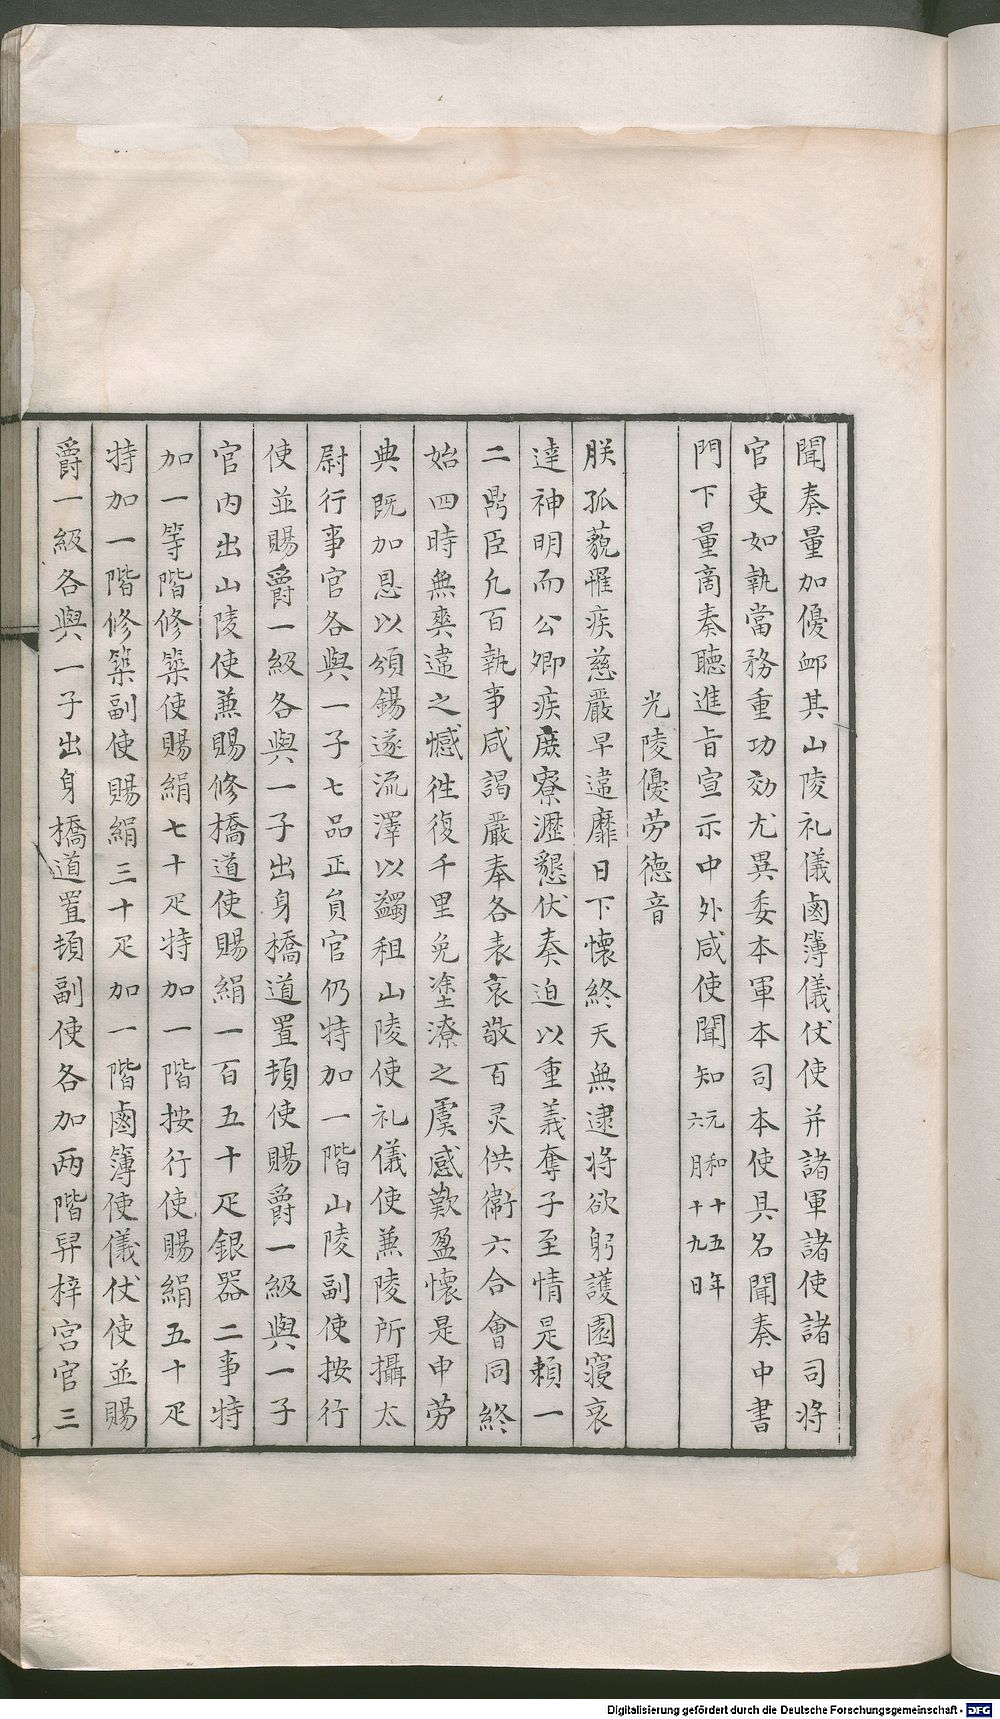 聞奏量加優䘏其山陵礼儀鹵簿儀仗使并諸軍諸使諸司將
官吏如執當務重功効尤異委本軍本司本使具名聞奏中書
門下量商奏聽進旨宣示中外咸使聞知元和十五年六月十九日
光陵優劳德音
朕孤藐罹疾慈嚴早違靡日下懐終天無逮將欲躬護園寝哀
達神明而公卿疾庶寮瀝懇伏奏迫以重義奪子至情是賴一
二鼎臣允百執事咸謁嚴奉各表哀敬百灵供衛六合會同終
始四時無爽違之憾徃復千里免塗潦之虞感歎盈懐是申劳
典既加恩以頒錫遂流澤以蠲租山陵使礼儀使蒹陵所攝太
尉行事官各與一子七品正員官仍特加一階山陵副使按行
使並賜爵一級各與一子出身橋道置頓使賜爵一級與一子
官内出山陵使蒹賜修橋道使賜絹一百五十疋銀器二事特
加一等階修築使賜絹七十疋特加一階按行使賜絹五十疋
特加一階修築副使賜絹三十疋加一階鹵簿使儀仗使並賜
爵一級各與一子出身橋道置頓副使各加两階舁梓宫官三
Digitalisierung gefördert durch die Deutsche Forschungsgemeinschaft - DFG